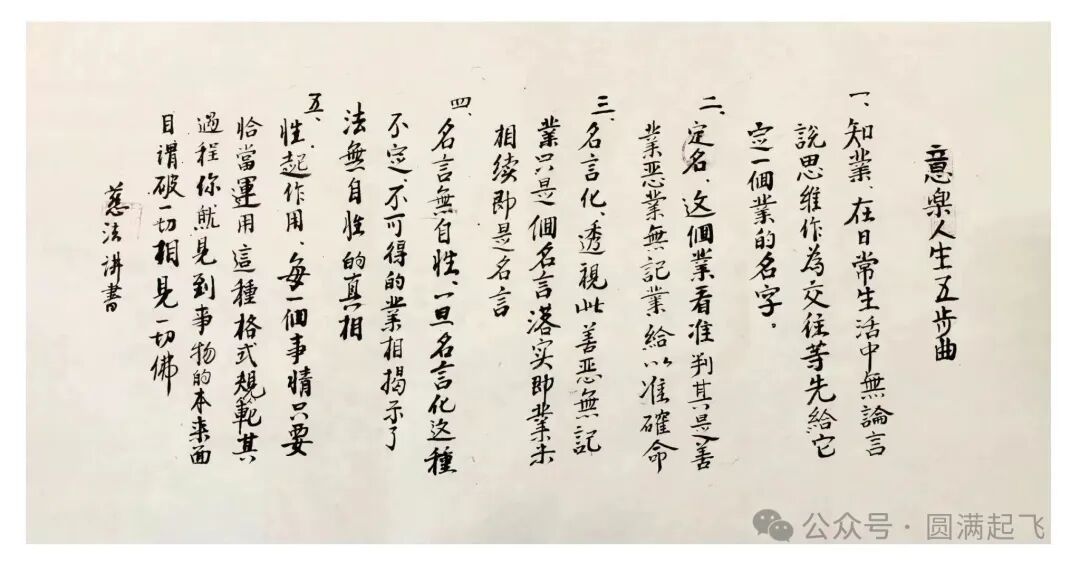 意樂人生五步曲
一、知業、在日常生活中無論言
說思維作為交往等先給它
定一個業的名字。
二、定名、这個業看准判其是善
業惡業無記業給以准確命
三、名言化、透視此善惡無記
業只是個名言落实即業未
相续即是名言
四、名言無自性、一旦名言化这種
不定、不可得的業相揭示了
法無自性的真相
五、性起作用、每一個事情只要
恰當運用這種格式規範其
過程你就見到事物的本来面
目謂破一切相見一切佛
慈法讲書
公众号·圆满起飞